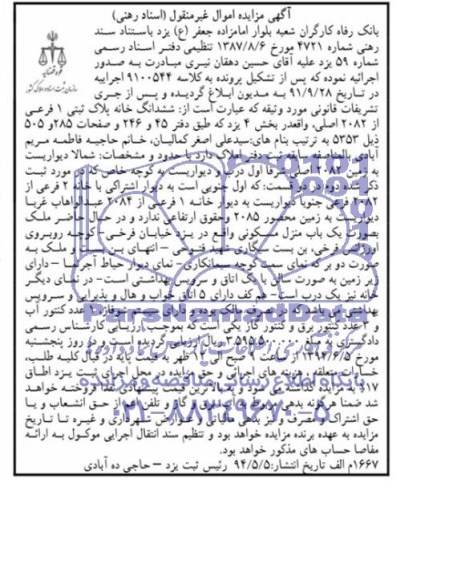 آگهی مزایده اموال غیرمنقول (اسناد رهنی)
بانک رفاه کارگران شعبه بلوار امامزاده جعفر (ع) یزد باستناد سند
رهنی شماره ۴۷۲۱ مورخ ۱۳۸۷/۸/۶ تنظیمی دفتر اسناد رسمی
شماره ۵۹ یزد علیه آقای حسین دهقان نیری مبادرت به صدور
اجرائیه نموده که پس از تشکیل پرونده به کلاسه ۹۱۰۰۵۴۴ اجراییه
در تاریخ ۹۱/۹/۲۸ به مدیون ابلاغ گردیده و پس از جری
تشریفات قانونی مورد وثیقه که عبارت است از: ششدانگ خانه پلاک ثبتی ۱ فرعی
از ۲۰۸۲ اصلی، واقعدر بخش ۴ یزد که طبق دفتر ۴۵ و ۲۴۶ و صفحات ۲۸۵و ۵۰۵
ذیل ۵۳۵۳ به ترتیب بنام های:سیدعلی اصغر کمالیان، خانم حاجیه فاطمه مریم
آبادی دارد با حدود و مشخصات: شمالا دیواریست
به زمین ۲۰۸۲ اصلی شرقا اول درب و دیواریست به کوچه خاص که در مورد ثبت
ذکر شده دوم در دو قسمت: که اول جنوبی است به دیوار اشتراکی با خانه ۲ فرعی از
۲۰۸۲ فرعی جنوبا دیواریست به دیوار خانه ۱ فرعی از ۲۰۸۴ غربا
دیواریست به زمین محصور ۲۰۸۵ وحقوق ارتفاعی ندارد و در حال حاضر ملک
بصورت یک باب منزل مسکونی واقع در یزد خیابان فرخی- کوچه روبروی
اورژانس فرخی، بن بست سیگاری شهید فتوحی - انتهای بن بست و ملک به
صورت دو بر که نمای سمت کوچه سیمانکاری- نمای دیوار حیاط آجرنما - دارای
زیر زمین به صورت سالن با یک اتاق و سرویس بهداشتی است- در نمای دیگر
خانه نیز یک درب است- هم کف دارای ۵ اتاق خواب و هال و پذیرایی و سرویس
بهداشتی می باشد کنتور آب
و ۳ عدد کنتور برق و کنتور گاز یکی است که بموجب ارزیابی کارشناس رسمی
دادگستری به مبلغ ۳,۵۹۵,۵۰۰,۰۰۰ ریال ارزیابی گردیده است و روز پنجشنبه
مورخ ۱۳۹۴/۶/۵ از ساعت ۹ صبح الی ۱۲ ظهر به قیمت پایه در قبال کلیه طلب،
خسارات متعلقه، هزینه های اجرائی و حق مزایده در محل اجرای ثبت یزد اطاق
۳۱۷ به مزایده گذاشته می شود و به بالاترین قیمت پیشنهادی نقدا فروخته خواهد
شد ضمنا هرگونه بدهی مربوط به آب، برق و گاز و تلفن اعم از حق انشعاب و یا
حق اشتراک و مصرف و نیز بدهی مالیاتی و عوارض شهرداری و غیره تا تاریخ
مزایده به عهده برنده مزایده خواهد بود و تنظیم سند انتقال اجرایی موکول به ارائه
مفاصا حساب های مذکور خواهد بود.
۱۶۶۷م الف تاریخ انتشار: ۹۴/۵/۵ رئیس ثبت یزد - حاجی ده آبادی
ParsNamadData
پایگاه اطلاع رسانی مناقصه و مزایده
۰۲۱-۸۸۳۴۹۶۷۰-۵